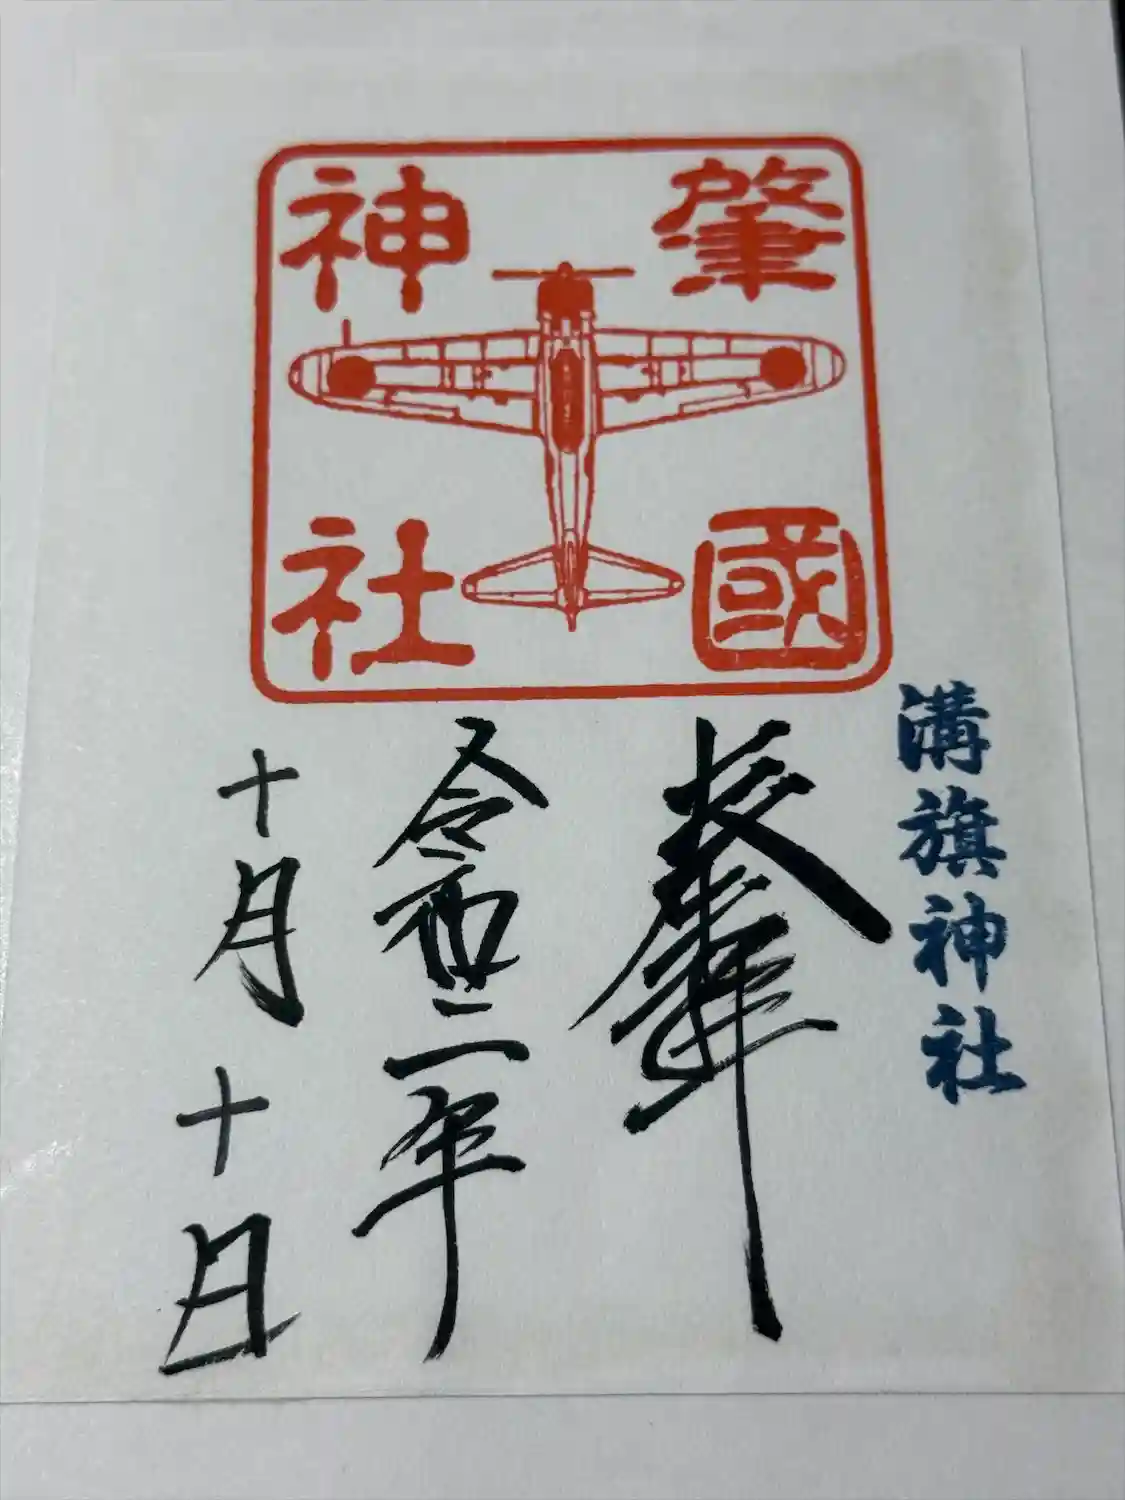 肇國
神社
溝旗神社
奉拝
令和二年
十月十日